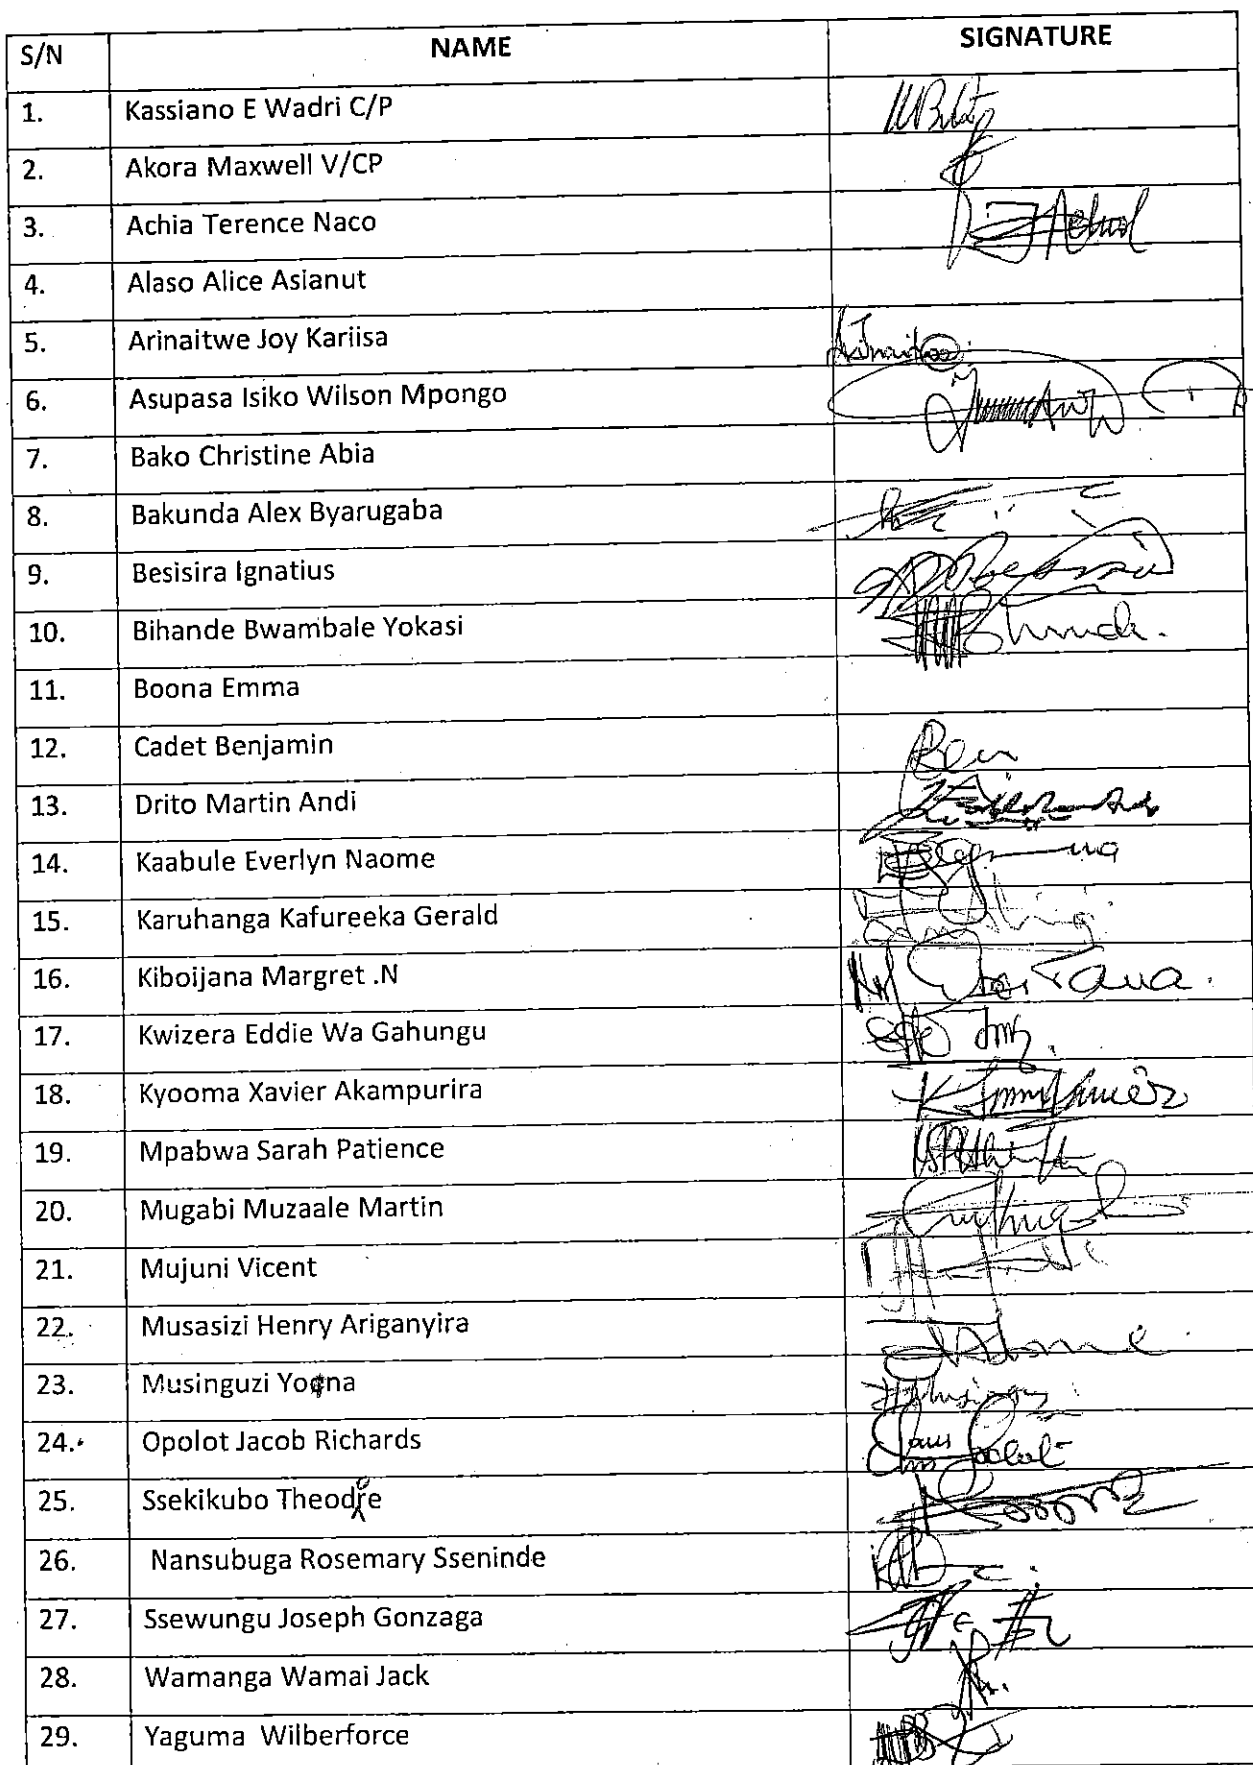 S/N NAME SIGNATURE
1. Kassiano E Wadri C/P
2. Akora Maxwell V/CP
3. Achia Terence Naco
4. Alaso Alice Asianut
5. Arinaitwe Joy Kariisa
6. Asupasa Isiko Wilson Mpongo
7. Bako Christine Abia
8. Bakunda Alex Byarugaba
9. Besisira Ignatius
10. Bihande Bwambale Yokasi
11. Boona Emma
12. Cadet Benjamin Ben
13. Drito Martin Andi
14. Kaabule Everlyn Naome
15. Karuhanga Kafureeka Gerald
16. Kiboijana Margret .N
17. Kwizera Eddie Wa Gahungu
18. Kyooma Xavier Akampurira
19. Mpabwa Sarah Patience
20. Mugabi Muzaale Martin
21. Mujuni Vicent
22. Musasizi Henry Ariganyira
23. Musinguzi Yoana
24. Opolot Jacob Richards
25. Ssekikubo Theodore
26. Nansubuga Rosemary Sseninde
27. Ssewungu Joseph Gonzaga
28. Wamanga Wamai Jack
29. Yaguma Wilberforce